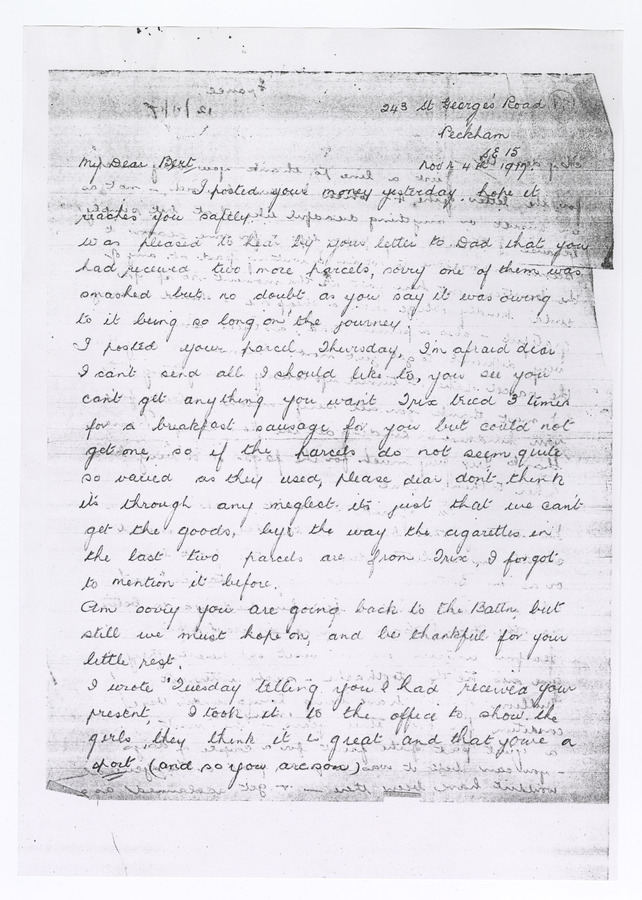 243 St George's Road
Peckham
SE 15
My Dear Bert
Novr 4th 1917.
I posted your money yesterday hope it
reaches you safely
was pleased to hear by your letter to Dad that you
had received two more parcels, sorry one of them was
smashed but no doubt as you say it was owing
to it being so long on the journey.
I posted your parcel Thursday, I'm afraid dear
I can't send all I should like to, you see you
can't get anything you want Trix tried 3 times
for a breakfast sausage for you but could not
get one, so if the parcels do not seem quite
so varied as they used, please dear don't think
it's through any neglect it's just that we can't
get the goods, bye the way the cigarettes in
the last two parcels are from Trix, I forgot
to mention it before.
Am sorry you are going back to the Battn, but
still we must hope on, and be thankful for your
little rest.
I wrote Tuesday telling you I had received your
present, I took it to the office to show the
girls they think it is great and that you're a
sport (and so you are son)